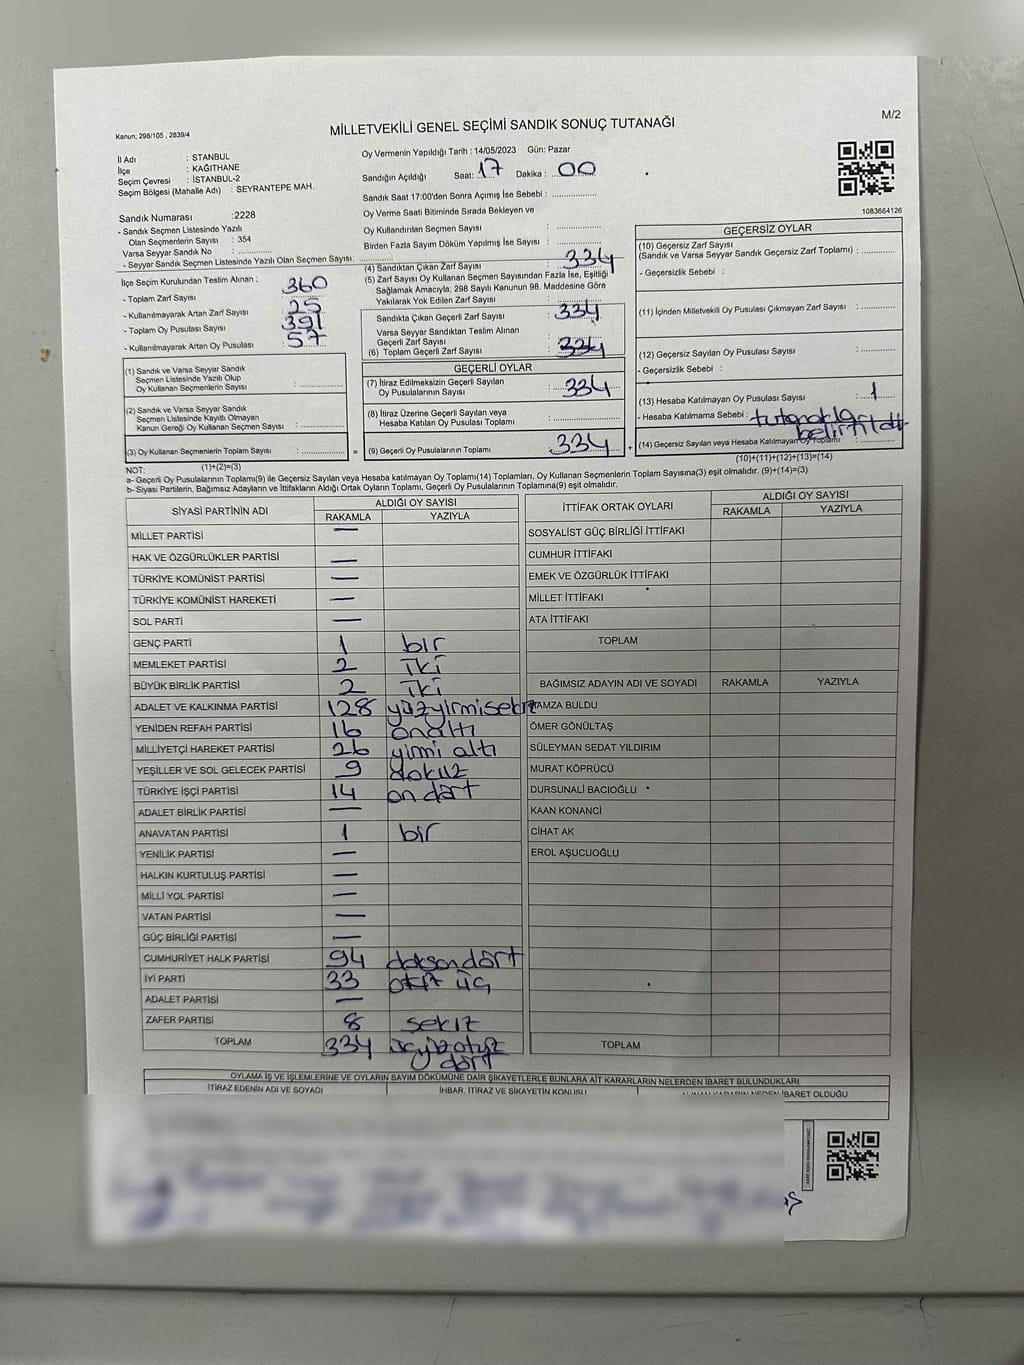 M/2
Kanun; 298/105 , 2839/4
MİLLETVEKİLİ GENEL SEÇİMİ SANDIK SONUÇ TUTANAĞI
İl Adı : STANBUL
İlçe : KAĞITHANE
Seçim Çevresi : İSTANBUL-2
Seçim Bölgesi (Mahalle Adı) : SEYRANTEPE MAH.
Oy Vermenin Yapıldığı Tarih : 14/05/2023 Gün: Pazar
Sandığın Açıldığı Saat: 17 Dakika : 00
Sandık Saat 17:00'den Sonra Açımış İse Sebebi : ..................
Oy Verme Saati Bitiminde Sırada Bekleyen ve
Oy Kullandırılan Seçmen Sayısı : ..................
Birden Fazla Sayım Döküm Yapılmış İse Sayısı : ..................
1083664126
Sandık Numarası :2228
- Sandık Seçmen Listesinde Yazılı
Olan Seçmenlerin Sayısı : 354
Varsa Seyyar Sandık No : ..............
- Seyyar Sandık Seçmen Listesinde Yazılı Olan Seçmen Sayısı: ..............
İlçe Seçim Kurulundan Teslim Alınan :
- Toplam Zarf Sayısı : 360
- Kullanılmayarak Artan Zarf Sayısı : 25
- Toplam Oy Pusulası Sayısı : 391
- Kullanılmayarak Artan Oy Pusulası : 57
(1) Sandık ve Varsa Seyyar Sandık
Seçmen Listesinde Yazılı Olup
Oy Kullanan Seçmenlerin Sayısı : ..............
(2) Sandık ve Varsa Seyyar Sandık
Seçmen Listesinde Kayıtlı Olmayan
Kanun Gereği Oy Kullanan Seçmen Sayısı : ..............
(3) Oy Kullanan Seçmenlerin Toplam Sayısı : ..............
(1)+(2)=(3)
(4) Sandıktan Çıkan Zarf Sayısı : 334
(5) Zarf Sayısı Oy Kullanan Seçmen Sayısından Fazla İse, Eşitliği
Sağlamak Amacıyla, 298 Sayılı Kanunun 98. Maddesine Göre
Yakılarak Yok Edilen Zarf Sayısı : ..............
Sandıkta Çıkan Geçerli Zarf Sayısı : 334
Varsa Seyyar Sandıktan Teslim Alınan
Geçerli Zarf Sayısı : ..............
(6) Toplam Geçerli Zarf Sayısı : 334
GEÇERLİ OYLAR
(7) İtiraz Edilmeksizin Geçerli Sayılan
Oy Pusulasının Sayısı : 334
(8) İtiraz Üzerine Geçerli Sayılan veya
Hesaba Katılan Oy Pusulası Toplamı : ..............
= (9) Geçerli Oy Pusulalarının Toplamı : 334 +
GEÇERSİZ OYLAR
(10) Geçersiz Zarf Sayısı
(Sandık ve Varsa Seyyar Sandık Geçersiz Zarf Toplamı) : ..............
- Geçersizlik Sebebi :
(11) İçinden Milletvekili Oy Pusulası Çıkmayan Zarf Sayısı : ..............
(12) Geçersiz Sayılan Oy Pusulası Sayısı : ..............
- Geçersizlik Sebebi :
(13) Hesaba Katılmayan Oy Pusulası Sayısı : 1
- Hesaba Katılmama Sebebi : tutanakla
belirtildi
(14) Geçersiz Sayılan veya Hesaba Katılmayan Oy Toplamı : ..............
(10)+(11)+(12)+(13)=(14)
NOT:
a- Geçerli Oy Pusulalarının Toplamı(9) ile Geçersiz Sayılan veya Hesaba katılmayan Oy Toplamı(14) Toplamları, Oy Kullanan Seçmenlerin Toplam Sayısına(3) eşit olmalıdır. (9)+(14)=(3)
b- Siyasi Partilerin, Bağımsız Adayların ve İttifakların Aldığı Ortak Oyların Toplamı, Geçerli Oy Pusulalarının Toplamına(9) eşit olmalıdır.
SİYASİ PARTİNİN ADI ALDIĞI OY SAYISI
RAKAMLA YAZIYLA
MİLLET PARTİSİ —
HAK VE ÖZGÜRLÜKLER PARTİSİ —
TÜRKİYE KOMÜNİST PARTİSİ —
TÜRKİYE KOMÜNİST HAREKETİ —
SOL PARTİ —
GENÇ PARTİ 1 bir
MEMLEKET PARTİSİ 2 iki
BÜYÜK BİRLİK PARTİSİ 2 iki
ADALET VE KALKINMA PARTİSİ 128 yüzyirmisekiz
YENİDEN REFAH PARTİSİ 16 onaltı
MİLLİYETÇİ HAREKET PARTİSİ 26 yirmi altı
YEŞİLLER VE SOL GELECEK PARTİSİ 9 dokuz
TÜRKİYE İŞÇİ PARTİSİ 14 on dört
ADALET BİRLİK PARTİSİ —
ANAVATAN PARTİSİ 1 bir
YENİLİK PARTİSİ —
HALKIN KURTULUŞ PARTİSİ —
MİLLİ YOL PARTİSİ —
VATAN PARTİSİ —
GÜÇ BİRLİĞİ PARTİSİ —
CUMHURİYET HALK PARTİSİ 94 doksandört
İYİ PARTİ 33 otuz üç
ADALET PARTİSİ —
ZAFER PARTİSİ 8 sekiz
TOPLAM 334 üçyüzotuz
dört
İTTİFAK ORTAK OYLARI ALDIĞI OY SAYISI
RAKAMLA YAZIYLA
SOSYALİST GÜÇ BİRLİĞİ İTTİFAKI
CUMHUR İTTİFAKI
EMEK VE ÖZGÜRLÜK İTTİFAKI
MİLLET İTTİFAKI
ATA İTTİFAKI
TOPLAM
BAĞIMSIZ ADAYIN ADI VE SOYADI RAKAMLA YAZIYLA
HAMZA BULDU
ÖMER GÖNÜLTAŞ
SÜLEYMAN SEDAT YILDIRIM
MURAT KÖPRÜCÜ
DURSUNALİ BACIOĞLU
KAAN KONANCİ
CİHAT AK
EROL AŞUCUOĞLU
TOPLAM
OYLAMA İŞ VE İŞLEMLERİNE VE OYLARIN SAYIM DÖKÜMÜNE DAİR ŞİKAYETLERLE BUNLARA AİT KARARLARIN NELERDEN İBARET BULUNDUKLARI
İTİRAZ EDENİN ADI VE SOYADI İHBAR, İTİRAZ VE ŞİKAYETİN KONUSU ALINAN KARARIN NEDEN İBARET OLDUĞU